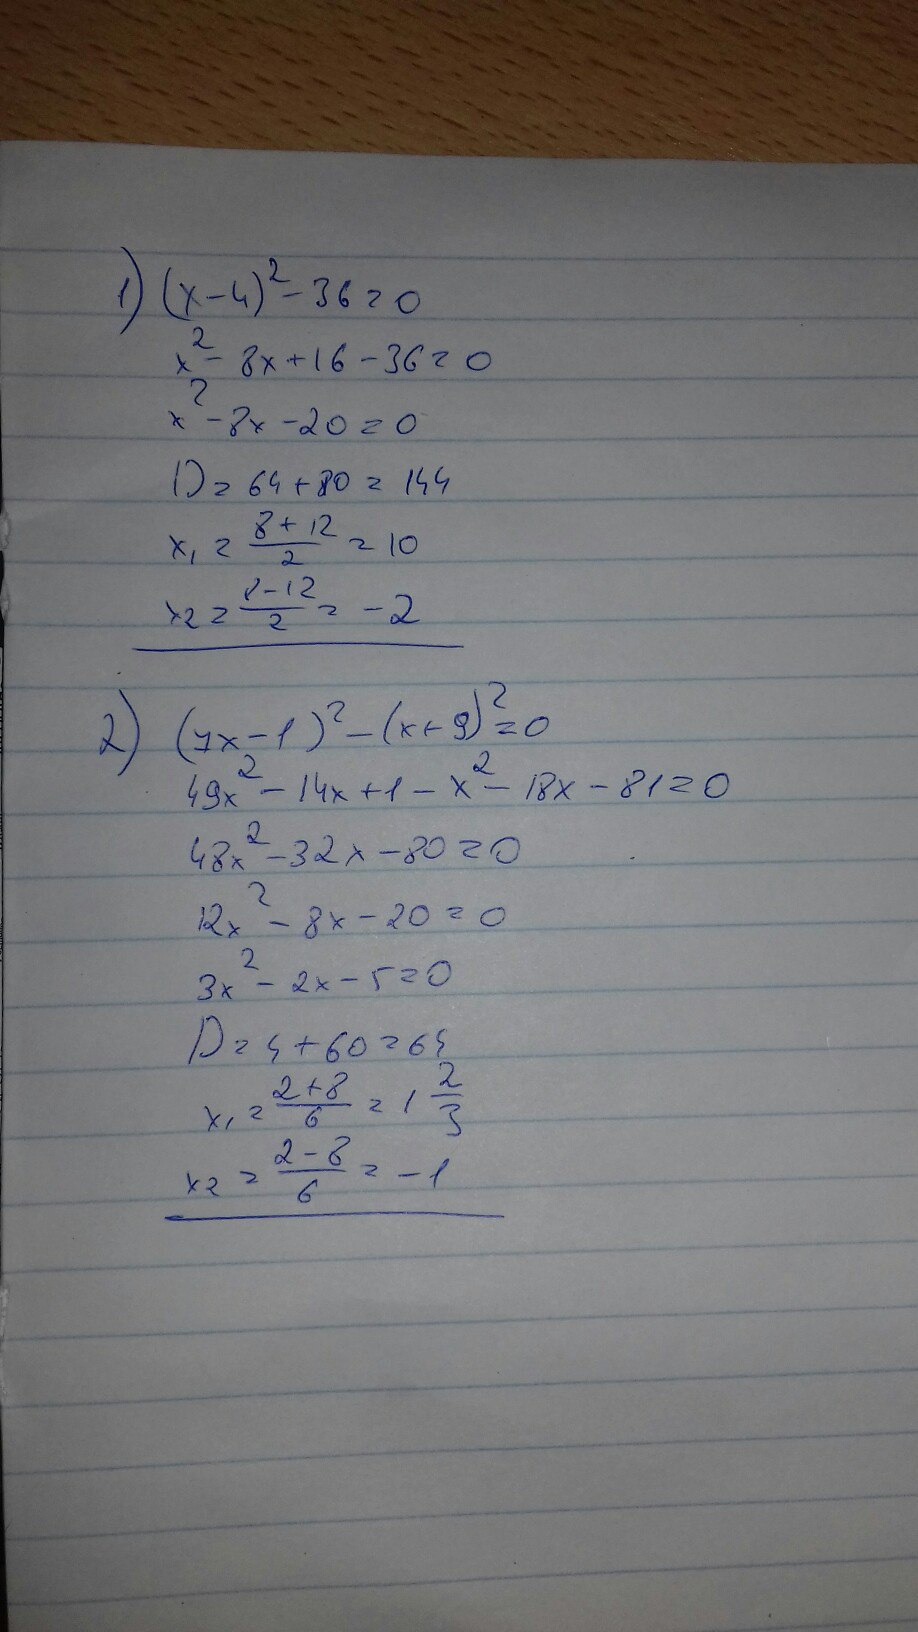 1) (x-4)² - 36 = 0
x² - 8x + 16 - 36 = 0
x² - 8x - 20 = 0
D = 64 + 80 = 144
x₁ = (8+12)/2 = 10
x₂ = (8-12)/2 = -2
2) (7x-1)² - (x+9)² = 0
49x² - 14x + 1 - x² - 18x - 81 = 0
48x² - 32x - 80 = 0
12x² - 8x - 20 = 0
3x² - 2x - 5 = 0
D = 4 + 60 = 64
x₁ = (2+8)/6 = 1 2/3
x₂ = (2-8)/6 = -1